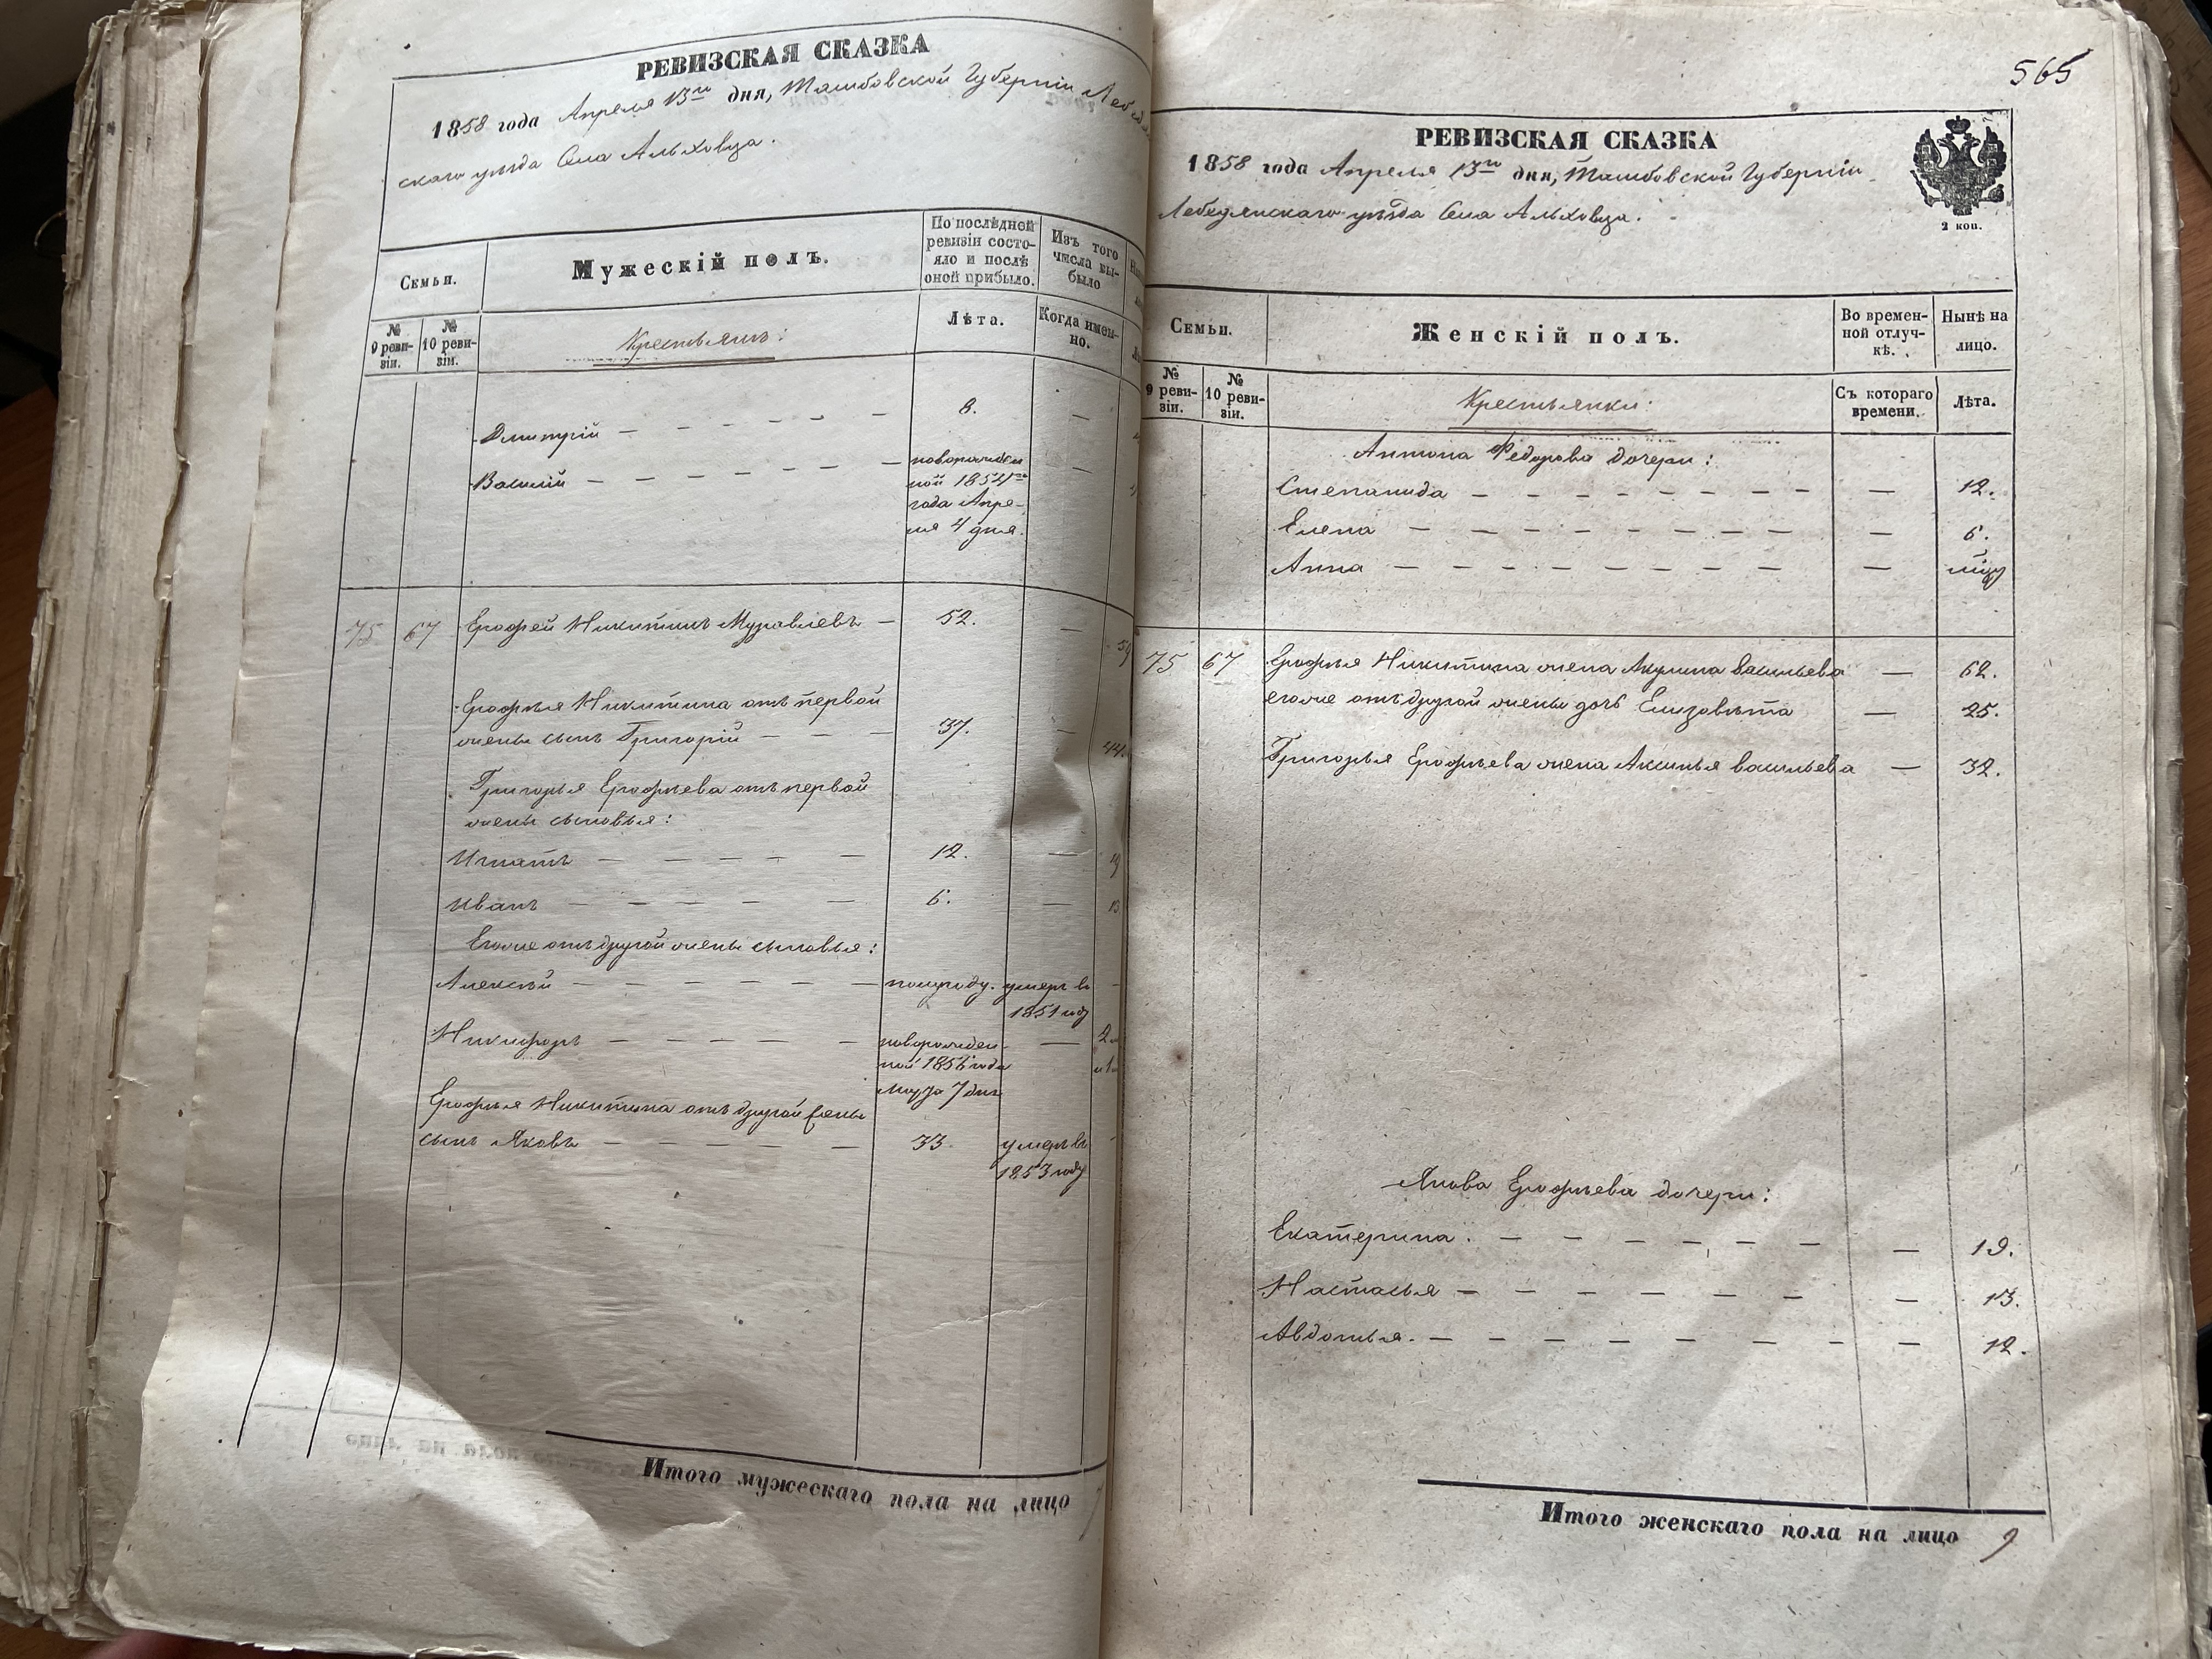 РЕВИЗСКАЯ СКАЗКА
1858 года Апреля 13го дня, Тамбовской Губерніи Лебедян
скаго уѣзда Села Альховца.
Семьи.
Мужескій полъ.
По послѣдней
ревизіи состо-
яло и послѣ
оной прибыло.
Изъ того
числа вы-
было
№
9 реви-
зіи.
№
10 реви-
зіи.
Крестьянъ:
Лѣта.
Когда имен-
но.
Дмитрій — — — — — 8. —
Василій — — — — — новорожден
ной 1854го
года Апре-
ля 4 дня. —
75 67 Ерофей Никитинъ Муравлевъ — 52. —
Ерофѣя Никитина отъ первой
жены сынъ Григорій — — — 37. — 44.
Григорья Ерофѣева отъ первой
жены сыновья:
Игнатъ — — — — — 12. — 19
Иванъ — — — — — 6. — 13
Егоже отъ другой жены сыновья:
Алексѣй — — — — — полугоду. умеръ въ
1851 году
Никифоръ — — — — — новорожден-
ной 1856 года
Марта 7 дня —
Ерофѣя Никитина отъ другой жены
сынъ Яковъ — — — — — 33. умеръ въ
1853 году
Итого мужескаго пола на лицо
565
РЕВИЗСКАЯ СКАЗКА
1858 года Апреля 13го дня, Тамбовской Губерніи
Лебедянскаго уѣзда Села Альховца.
2 коп.
Семьи.
Женскій полъ.
Во времен-
ной отлуч-
кѣ.
Нынѣ на
лицо.
№
9 реви-
зіи.
№
10 реви-
зіи.
Крестьянки:
Съ котораго
времени.
Лѣта.
Антона Федорова дочери:
Степанида — — — — — — — — — 12.
Елена — — — — — — — — — 6.
Анна — — — — — — — — —
75 67 Ерофѣя Никитина жена Акулина васильева — 62.
егоже отъ другой жены дочь Елизовѣта — 25.
Григорья Ерофѣева жена Аксинья васильева — 32.
Якова Ерофѣева дочери:
Екатерина. — — — — — — — 19.
Настасья — — — — — — — 13.
Авдотья. — — — — — — — — 12.
Итого женскаго пола на лицо 9